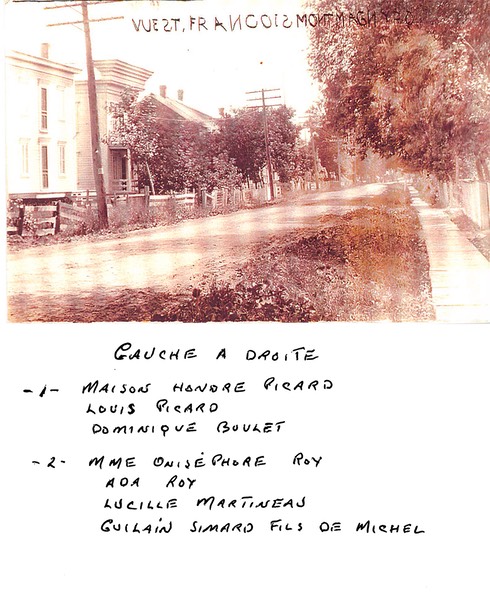 VUE ST, FRANCOIS MONTMAGNY
GAUCHE A DROITE
-1- MAISON HONORE PICARD
LOUIS PICARD
DOMINIQUE BOULET
-2- MME ONISÉPHORE ROY
ADA ROY
LUCILLE MARTINEAU
GUILAIN SIMARD FILS DE MICHEL